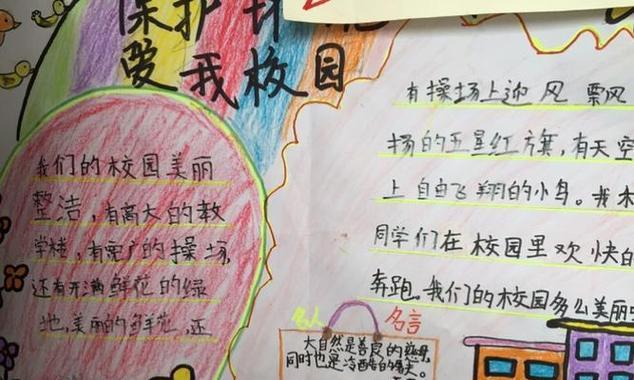 保护环
爱我校园
我们的校园美丽
整洁，有高大的教
学楼，有宽广的操场，
还有开满鲜花的绿
地，美丽的鲜花，还
有操场上迎风票风
扬的五星红旗，有天空
上自由飞翔的小鸟。我
同学们在校园里欢快的
奔跑。我们的校园多么美丽
名人名言
大自然是善良的慈母，
同时也是冷酷的屠夫。